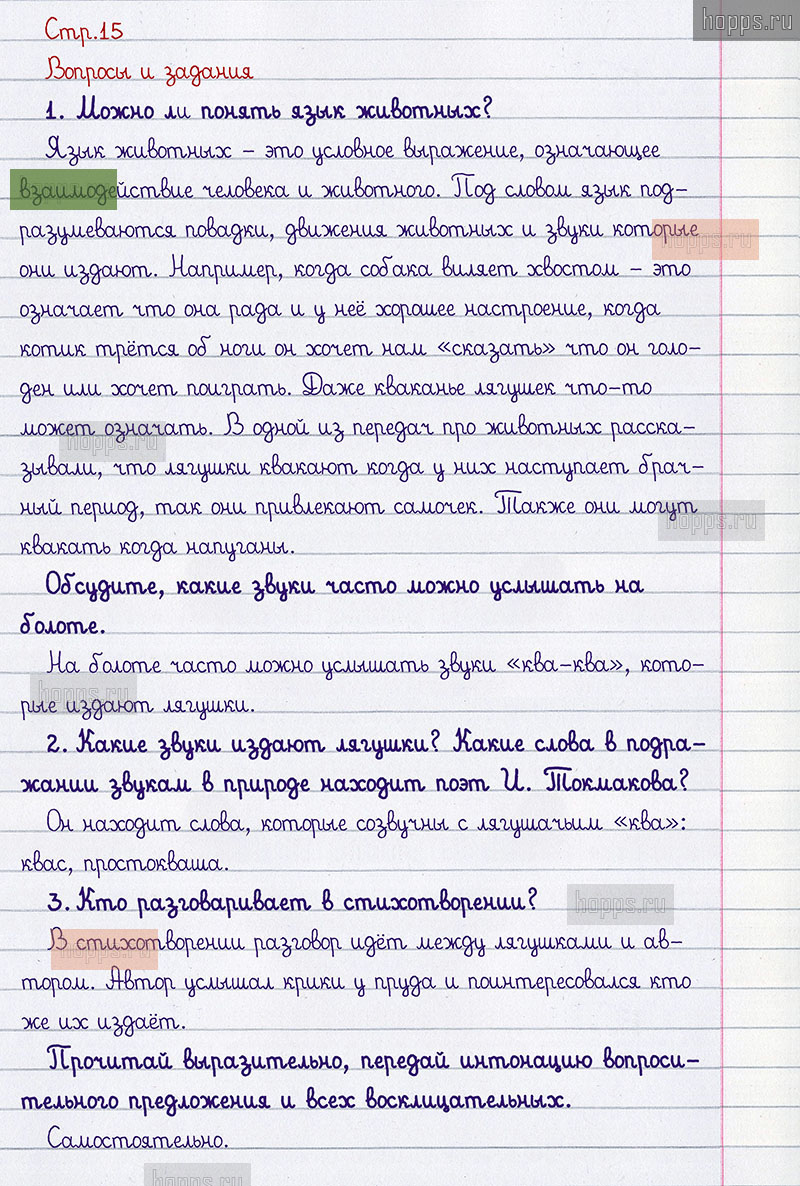 hopps.ru
Стр.15
Вопросы и задания
1. Можно ли понять язык животных?
Язык животных – это условное выражение, означающее
взаимодействие человека и животного. Под словом язык под-
разумеваются повадки, движения животных и звуки которые
hopps.ru
они издают. Например, когда собака виляет хвостом – это
означает что она рада и у неё хорошее настроение, когда
котик трётся об ноги он хочет нам «сказать» что он голо-
ден или хочет поиграть. Даже кваканье лягушек что-то
может означать. В одной из передач про животных расска-
hopps.ru
зывали, что лягушки квакают когда у них наступает брач-
ный период, так они привлекают самочек. Также они могут
hopps.ru
квакать когда напуганы.
Обсудите, какие звуки часто можно услышать на
болоте.
На болоте часто можно услышать звуки «ква-ква», кото-
hopps.ru
рые издают лягушки.
2. Какие звуки издают лягушки? Какие слова в подра-
жании звукам в природе находит поэт И. Токмакова?
Он находит слова, которые созвучны с лягушачьим «ква»:
квас, простокваша.
3. Кто разговаривает в стихотворении?
hopps.ru
В стихотворении разговор идёт между лягушками и ав-
hopps.ru
тором. Автор услышал крики у пруда и поинтересовался кто
же их издаёт.
Прочитай выразительно, передай интонацию вопроси-
тельного предложения и всех восклицательных.
Самостоятельно.
hopps.ru